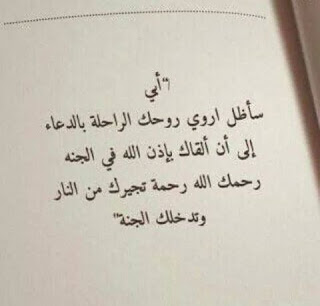 "أبي
سأظل اروي روحك الراحلة بالدعاء
إلى أن ألقاك بإذن الله في الجنه
رحمك الله رحمة تجيرك من النار
وتدخلك الجنة"